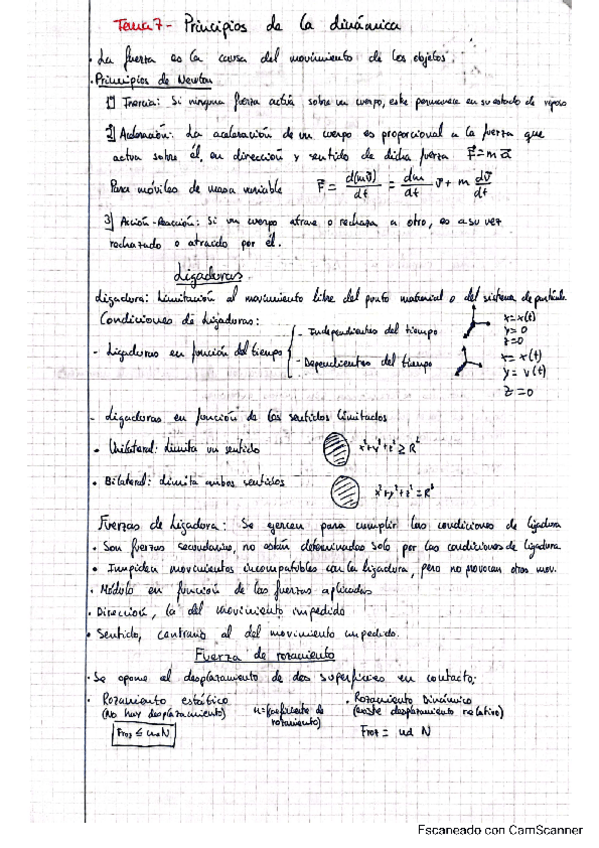 Tema 7 - Principios de la dinámica
· La fuerza es la causa del movimiento de los objetos.
· Principios de Newton
1) Inercia: Si ninguna fuerza actúa sobre un cuerpo, este permanece en su estado de reposo
2) Aceleración: La aceleración de un cuerpo es proporcional a la fuerza que
actúa sobre él, en dirección y sentido de dicha fuerza F⃗ = m a⃗
Para móviles de masa variable F⃗ = d(mv⃗)/dt = dm/dt v⃗ + m dv⃗/dt
3) Acción-Reacción: Si un cuerpo atrae o rechaza a otro, es a su vez
rechazado o atraído por él.
Ligaduras
Ligadura: Limitación al movimiento libre del punto material o del sistema de partículas
Condiciones de Ligaduras:
- Ligaduras en función del tiempo
- Independientes del tiempo
x = x(t)
y = 0
z = 0
- Dependientes del tiempo
x = x(t)
y = v(t)
z = 0
- Ligaduras en función de los sentidos limitados
· Unilateral: Limita un sentido x²+y²+z² ≥ R²
· Bilateral: Limita ambos sentidos x²+y²+z² = R²
Fuerzas de Ligadura: Se ejercen para cumplir las condiciones de ligadura
· Son fuerzas secundarias, no están determinadas solo por las condiciones de ligadura
· Impiden movimientos incompatibles con la ligadura, pero no provocan otros mov.
· Módulo en función de las fuerzas aplicadas
· Dirección, la del movimiento impedido
· Sentido, contrario al del movimiento impedido.
Fuerza de rozamiento
· Se opone al desplazamiento de dos superficies en contacto:
· Rozamiento estático
(No hay desplazamiento)
u = coeficiente de
rozamiento)
· Rozamiento Dinámico
(existe desplazamiento relativo)
Froz ≤ ue N
Froz = ud N
Escaneado con CamScanner